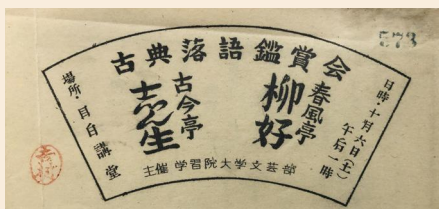 573
古典落語鑑賞会
日時・十月六日(土)
午后一時
春風亭
柳好
古今亭
志ん生
場所・目白講堂
主催 学習院大学文芸部